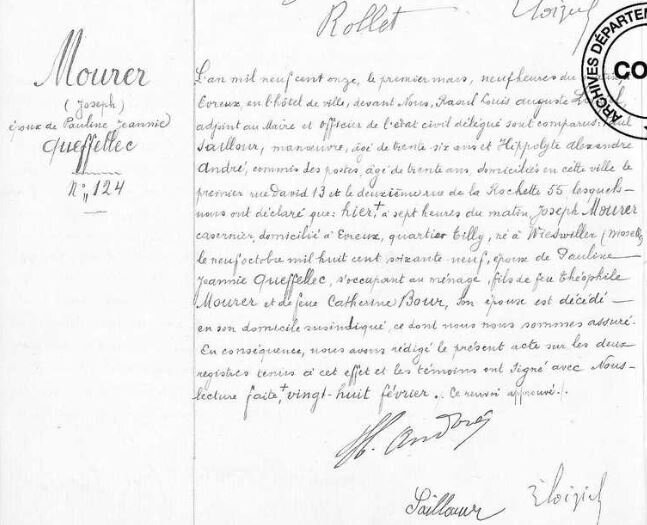 Rollet
Mourer
(Joseph)
époux de Pauline Jeannie
Queffellec
N° 124
L'an mil neuf cent onze, le premier mars, neuf heures du
Evreux, en l'hôtel de ville, devant Nous, Raoul Louis auguste
adjoint au Maire et officier de l'état civil délégué sont comparus:
Saillour, manœuvre, âgé de trente six ans et Hippolyte Alexandre
André, commis des postes, âgé de trente ans, domiciliés en cette ville le
premier rue David 13 et le deuxième rue de la Rochette 55 lesquels
nous ont déclaré que: hier,+ à sept heures du matin, Joseph Mourer
casernier, domicilié à Evreux, quartier Tilly, né à Wieswiller (Moselle)
le neuf octobre mil huit cent soixante neuf, époux de Pauline
Jeannie Queffellec, s'occupant au ménage, fils de feu Théophile
Mourer et de feue Catherine Bour, son épouse est décédé
en son domicile susindiqué, ce dont nous nous sommes assuré.
En conséquence, nous avons rédigé le présent acte sur les deux
registres tenus à cet effet et les témoins ont signé avec Nous
lecture faite,+ vingt-huit février. Ce renvoi approuvé.
H. André
Saillour
ARCHIVES DÉPARTEM
CO